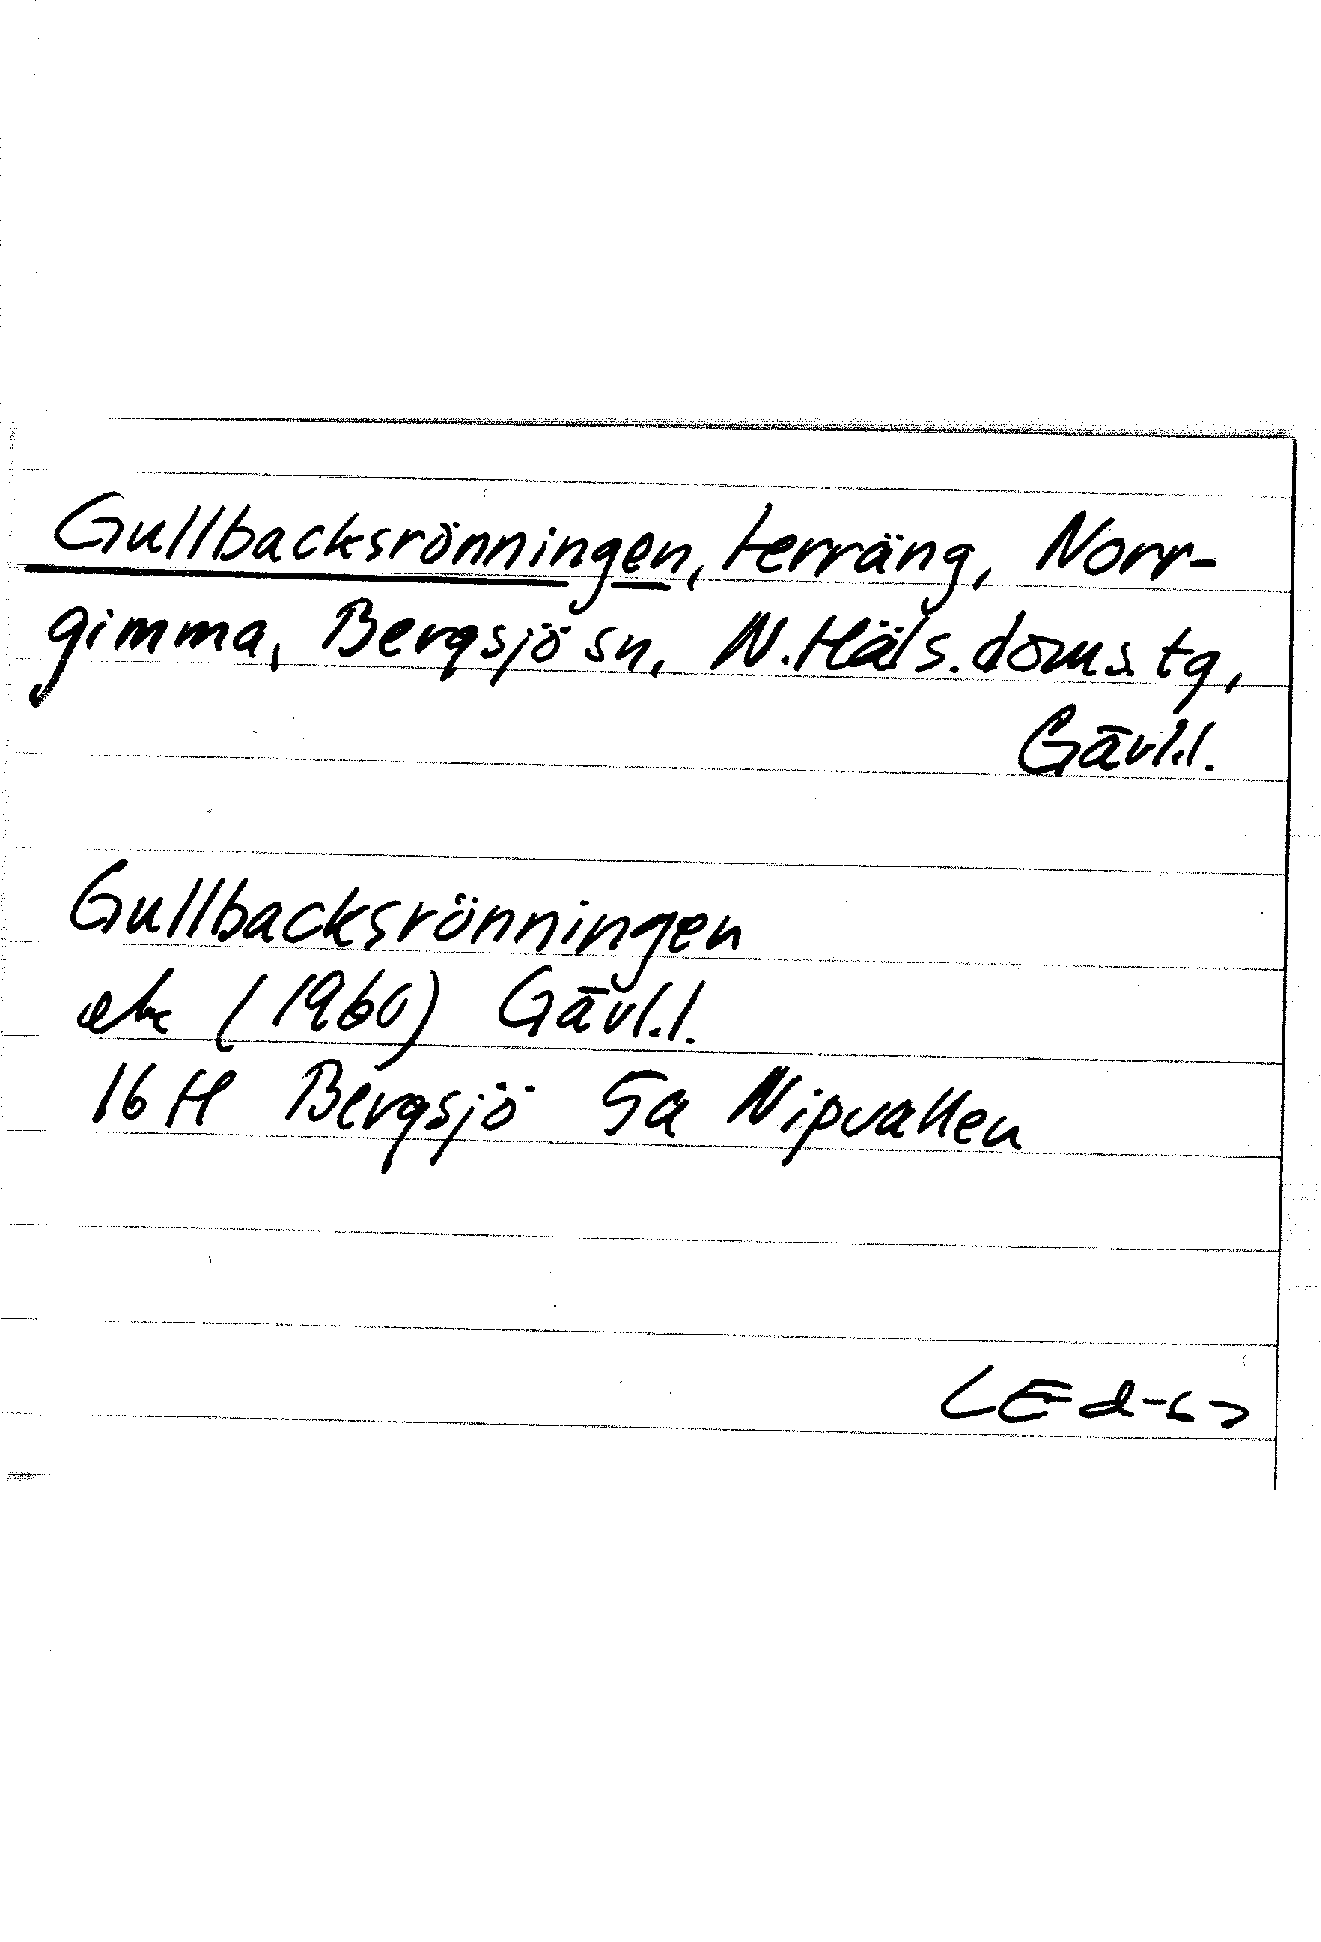 Gullbacksrönningen, terräng, Norr-
gimma, Bergsjö sn, N. Häls. doms. tg,
Gävl.l.
Gullbacksrönningen
ek (1960) Gävl.l.
16 H Bergsjö 5a Nipvallen